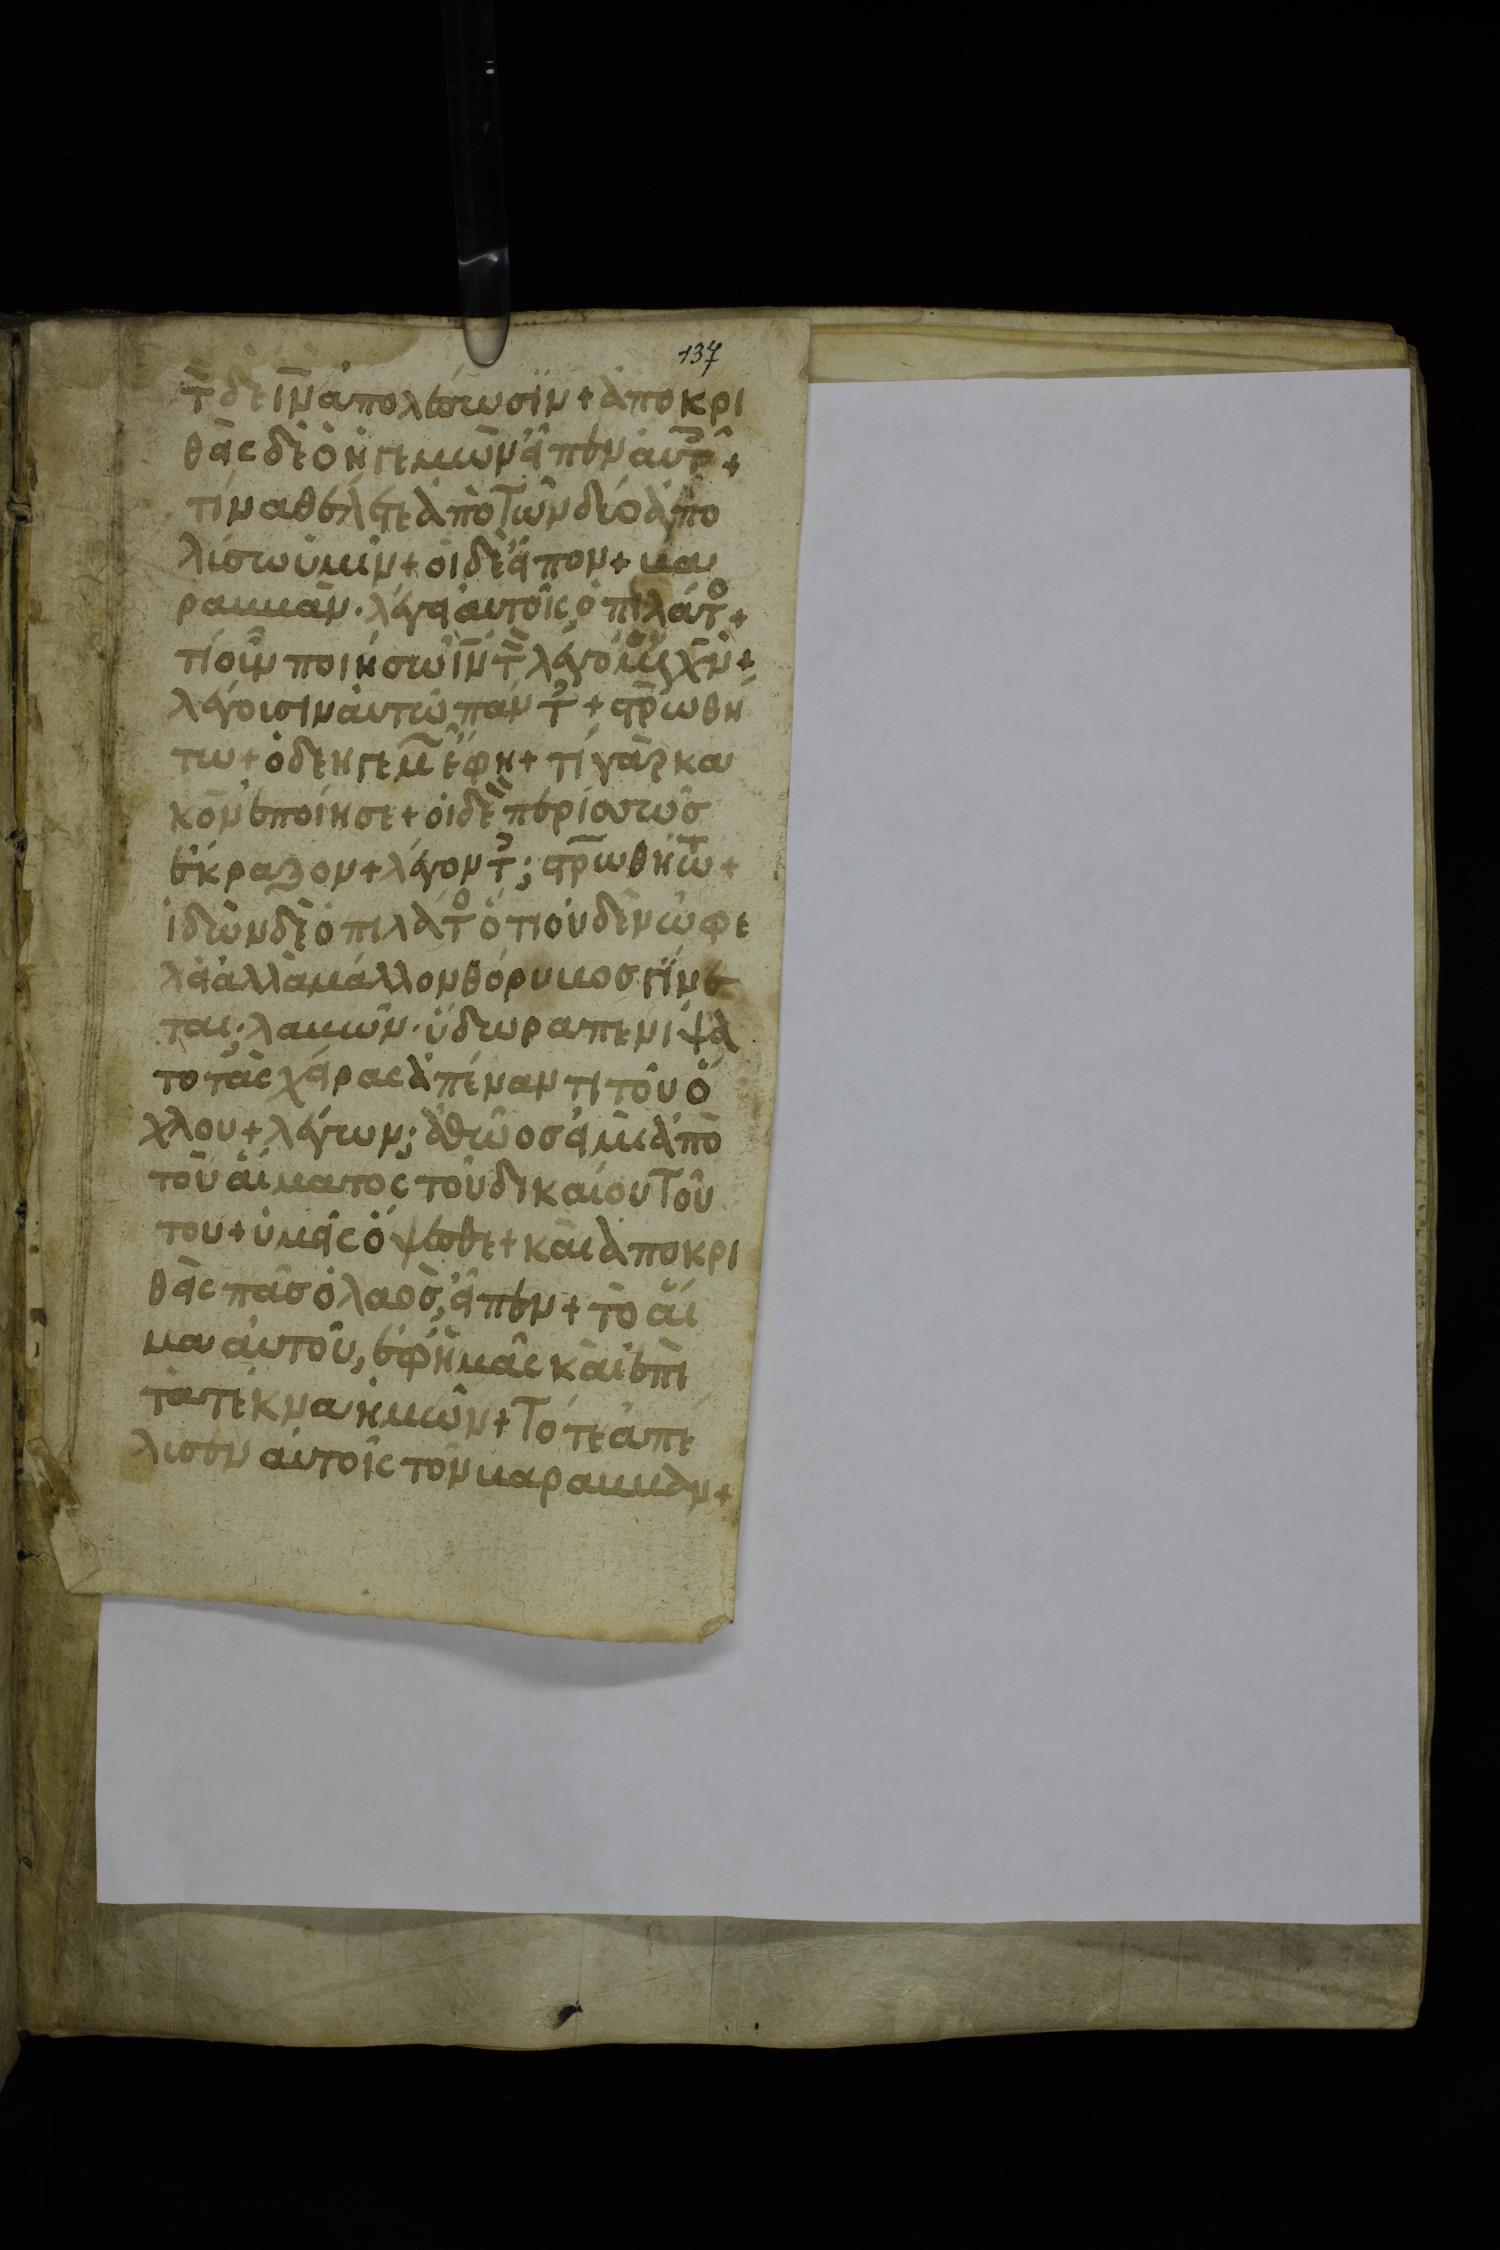 137
τ̀ δὲ ἰ̅ν̅ ἀπολέσωσϊν + ἀποκρι
θὰς δὲ ὁ ἡγεμὼν εἶπεν αὐτ͂ +
τίνα θέλετε ἀπὸ τῶν δύο ἀπο
λίσω ὑμῖν + οἱ δὲ εἶπον + βα
ραββᾶν · λέγει αὐτοῖς ὁ πιλάτο +
τί οὖν ποιήσω ἰ̅ν̅ τ̀ λεγόμε χ̅ν̅ +
λέγουσιν αὐτῶ πάντ + στ̅ρωθή
τω + ὁ δε ηγεμ̃ ἔφη + τί γὰρ κα
κὸν ἐποίησε + οἱ δὲ περισσῶσ
ἔκραζον + λέγοντ ; στ̅ρωθήτω +
ἰδὼν δὲ ὁ πιλάτο ὅτι οὐδὲν ὠφε
λεῖ ἀλλὰ μάλλον θόρυβοσ γίνε
ται · λαβὼν · ὕδωρ απενίψα
το τὰς χεῖρας ἀπέναντι τοῦ ὄ
χλου + λέγων ; ἀθῶοσ εἰμι ἀπὸ
τοῦ αἵματος τοῦ δικαίου τού
του + ὑμεῖς ὄψεσθε + καὶ ἀποκρι
θὰς πᾶσ ὁ λαὸσ, εἶπεν + τὸ αἵ
μα αὐτοῦ, ἐφ' ἡμᾶς καὶ ἐπὶ
τὰ τέκνα ἡμῶν + Τότε ἀπέ
λισεν αὐτοῖς τὸν βαραββᾶν +